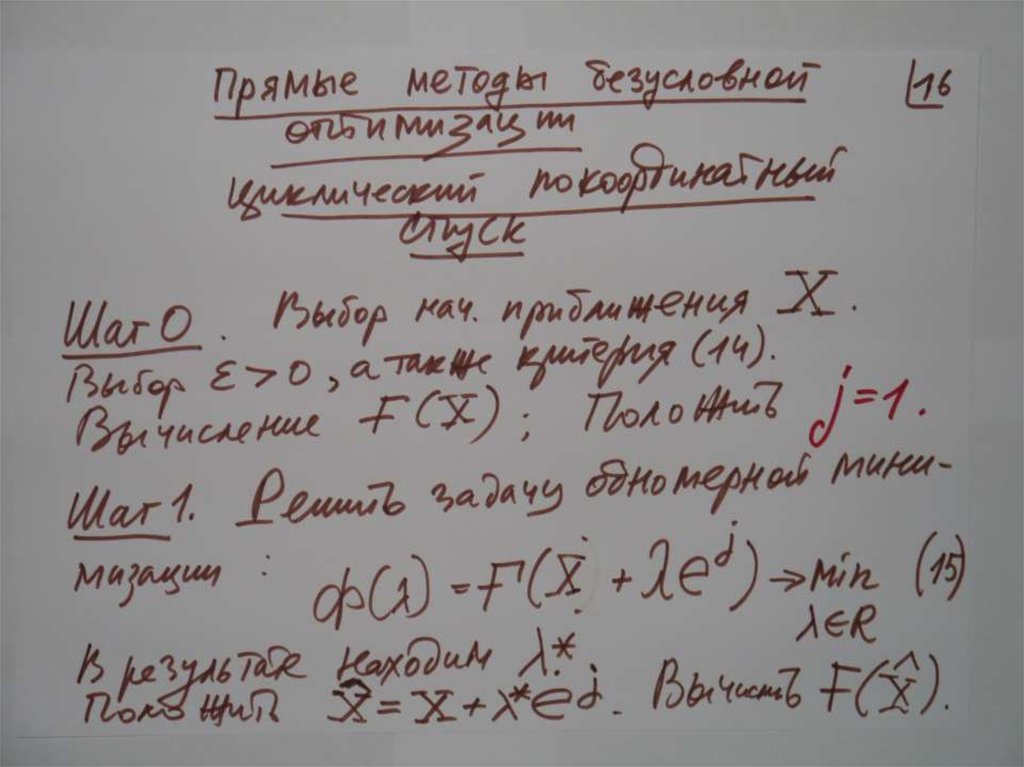 Прямые методы безусловной
16
оптимизации
циклический покоординатный
спуск
Шаг 0. Выбор нач. приближения X.
Выбор ε > 0, а также критерия (14).
Вычисление F(X); Положить j=1.
Шаг 1. Решить задачу одномерной мини-
мизации: ф(λ) = F(X + λe^j) → min (15)
λ∈R
В результате находим λ*.
Положить X̂ = X + λ*e^j. Вычислить F(X̂).